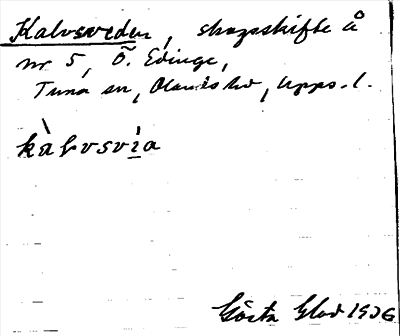 Kalvsveden, skogsskifte å
nr 5, Ö. Edinge,
Tuna sn, Olands hd, Upps. l.
kàlvsvìa
Gösta Glad 1936